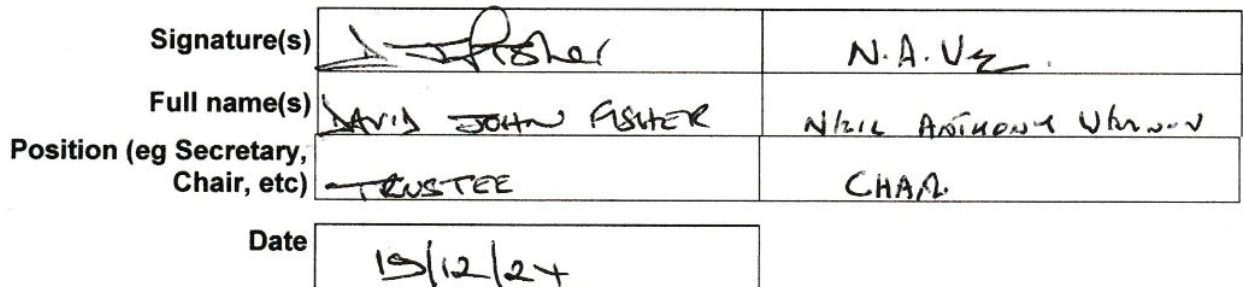 Signature(s) D J Fisher N.A. V
Full name(s) DAVID JOHN FISHER NEIL ANTHONY
Position (eg Secretary,
Chair, etc) TRUSTEE CHAIR
Date 19/12/24